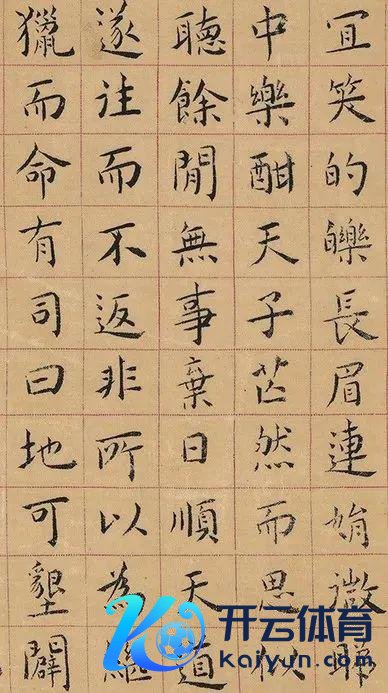 宜笑的皪長眉連娟微睇
中樂酣天子芒然而思似
聽餘閒無事棄日順天道
遂往而不返非所以為繼
獵而命有司曰地可墾闢
开云体育
kaiyun.com